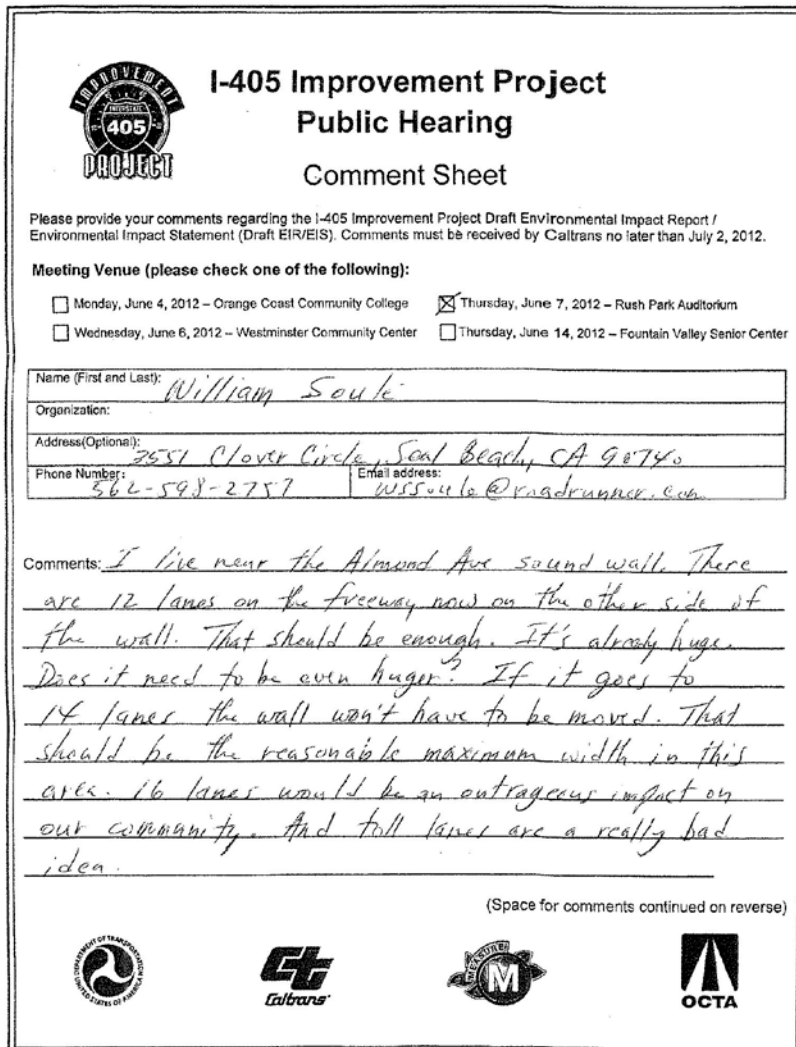 IMPROVEMENT
INTERSTATE
405
PROJECT
I-405 Improvement Project
Public Hearing
Comment Sheet
Please provide your comments regarding the I-405 Improvement Project Draft Environmental Impact Report /
Environmental Impact Statement (Draft EIR/EIS). Comments must be received by Caltrans no later than July 2, 2012.
Meeting Venue (please check one of the following):
Monday, June 4, 2012 – Orange Coast Community College
Thursday, June 7, 2012 – Rush Park Auditorium
Wednesday, June 6, 2012 – Westminster Community Center
Thursday, June 14, 2012 – Fountain Valley Senior Center
Name (First and Last): William Soule
Organization:
Address(Optional): 3551 Clover Circle, Seal Beach, CA 90740
Phone Number: 562-598-2757
Email address: wssoule@roadrunner.com
Comments: I live near the Almond Ave sound wall. There
are 12 lanes on the freeway now on the other side of
the wall. That should be enough. It's already huge.
Does it need to be even huger? If it goes to
14 lanes the wall won't have to be moved. That
should be the reasonable maximum width in this
area. 16 lanes would be an outrageous impact on
our community. And toll lanes are a really bad
idea.
(Space for comments continued on reverse)
DEPARTMENT OF TRANSPORTATION
UNITED STATES OF AMERICA
Caltrans
MEASURE
M
OCTA